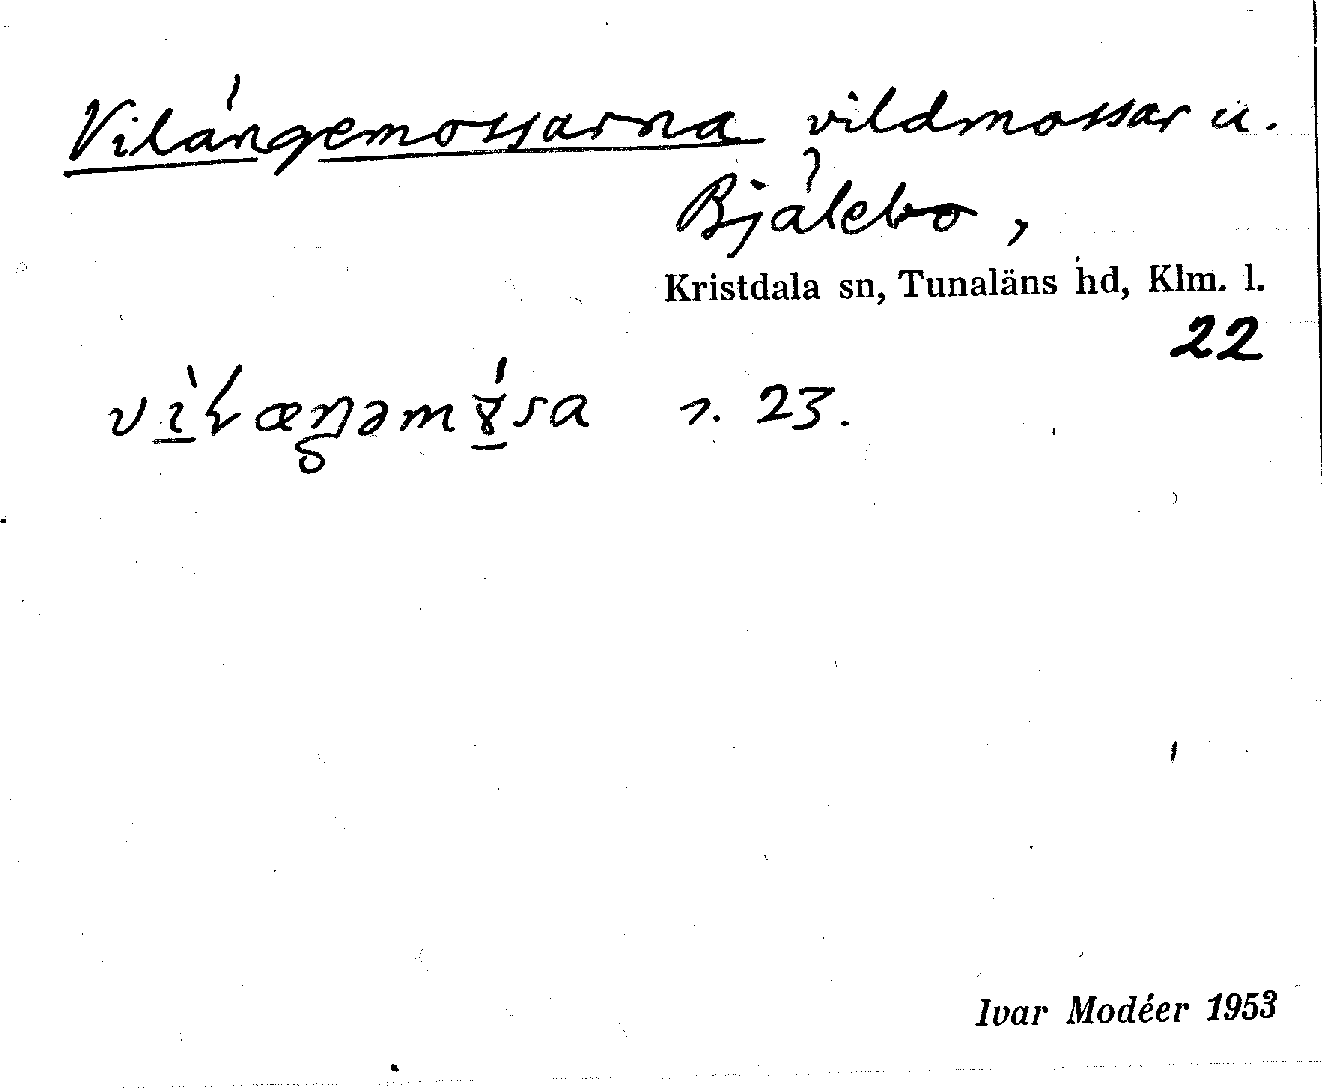 Vilängemossarna vildmossar u.
Bjälebo,
Kristdala sn, Tunaläns hd, Klm. l.
22
vìɽæŋəmɤ́sa r. 23.
Ivar Modéer 1953